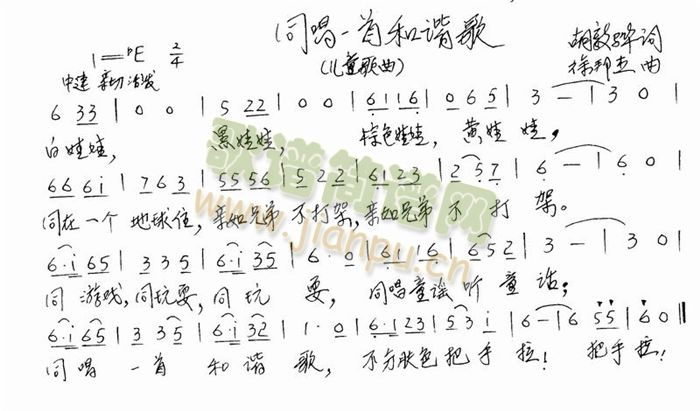 同唱一首和谐歌
(儿童歌曲)
1=♭E 2/4
胡敦骅词
徐邦杰曲
中速 亲切活泼
6 33 | 0 0 | 5 22 | 0 0 | 6116 | 0 6 5 | 3 — | 3 0 |
白娃娃, 黑娃娃, 棕色娃娃, 黄娃娃,
666i | 7 6 3 | 5556 | 5 2 2 | 6123 | 2 3 5 7 | 6 — | 6 0 |
同在一个地球住,亲如兄弟不打架,亲如兄弟不打架。
6·i 65 | 3 3 5 | 6·i 35 | 6· 0 | 6i i6 | 6 5 2 | 3 — | 3 0 |
同游戏,同玩耍,同玩耍, 同唱童谣听童话;
6·i 65 | 3 3 5 | 6·i 32 | 1· 0 | 6·123 | 5 3 i | 6 — | 6 5 5 | 6 0 ‖
同唱一首和谐歌, 不分肤色把手拉! 把手拉!
歌谱简谱网
www.jianpu.cn